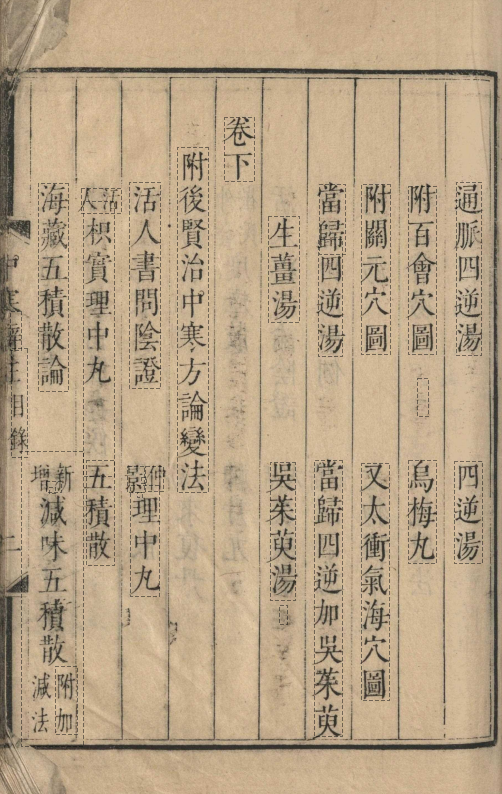 通脉四逆湯　四逆湯
附百會穴圖　烏梅丸
附關元穴圖　又太衝氣海穴圖
當歸四逆湯　當歸四逆加吳茱萸
生薑湯　吳茱萸湯
卷下
附後賢治中寒方論變法
活人書問陰證　仲景理中丸
活人枳實理中丸　五積散
海藏五積散論　新增減味五積散附加減法
中寒論
目錄
二